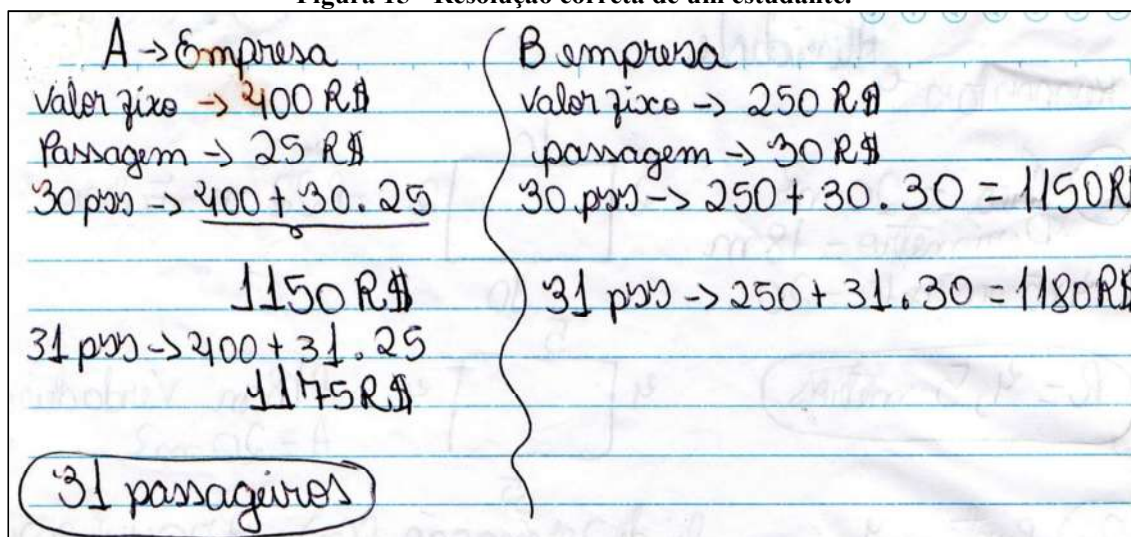 Figura 15 - Resolução correta de um estudante.
A → Empresa
Valor fixo → 400 R$
Passagem → 25 R$
30 pss → 400 + 30.25
1150 R$
31 pss → 400 + 31.25
1175 R$
31 passageiros
B empresa
Valor fixo → 250 R$
passagem → 30 R$
30 pss → 250 + 30.30 = 1150R$
31 pss → 250 + 31.30 = 1180R$